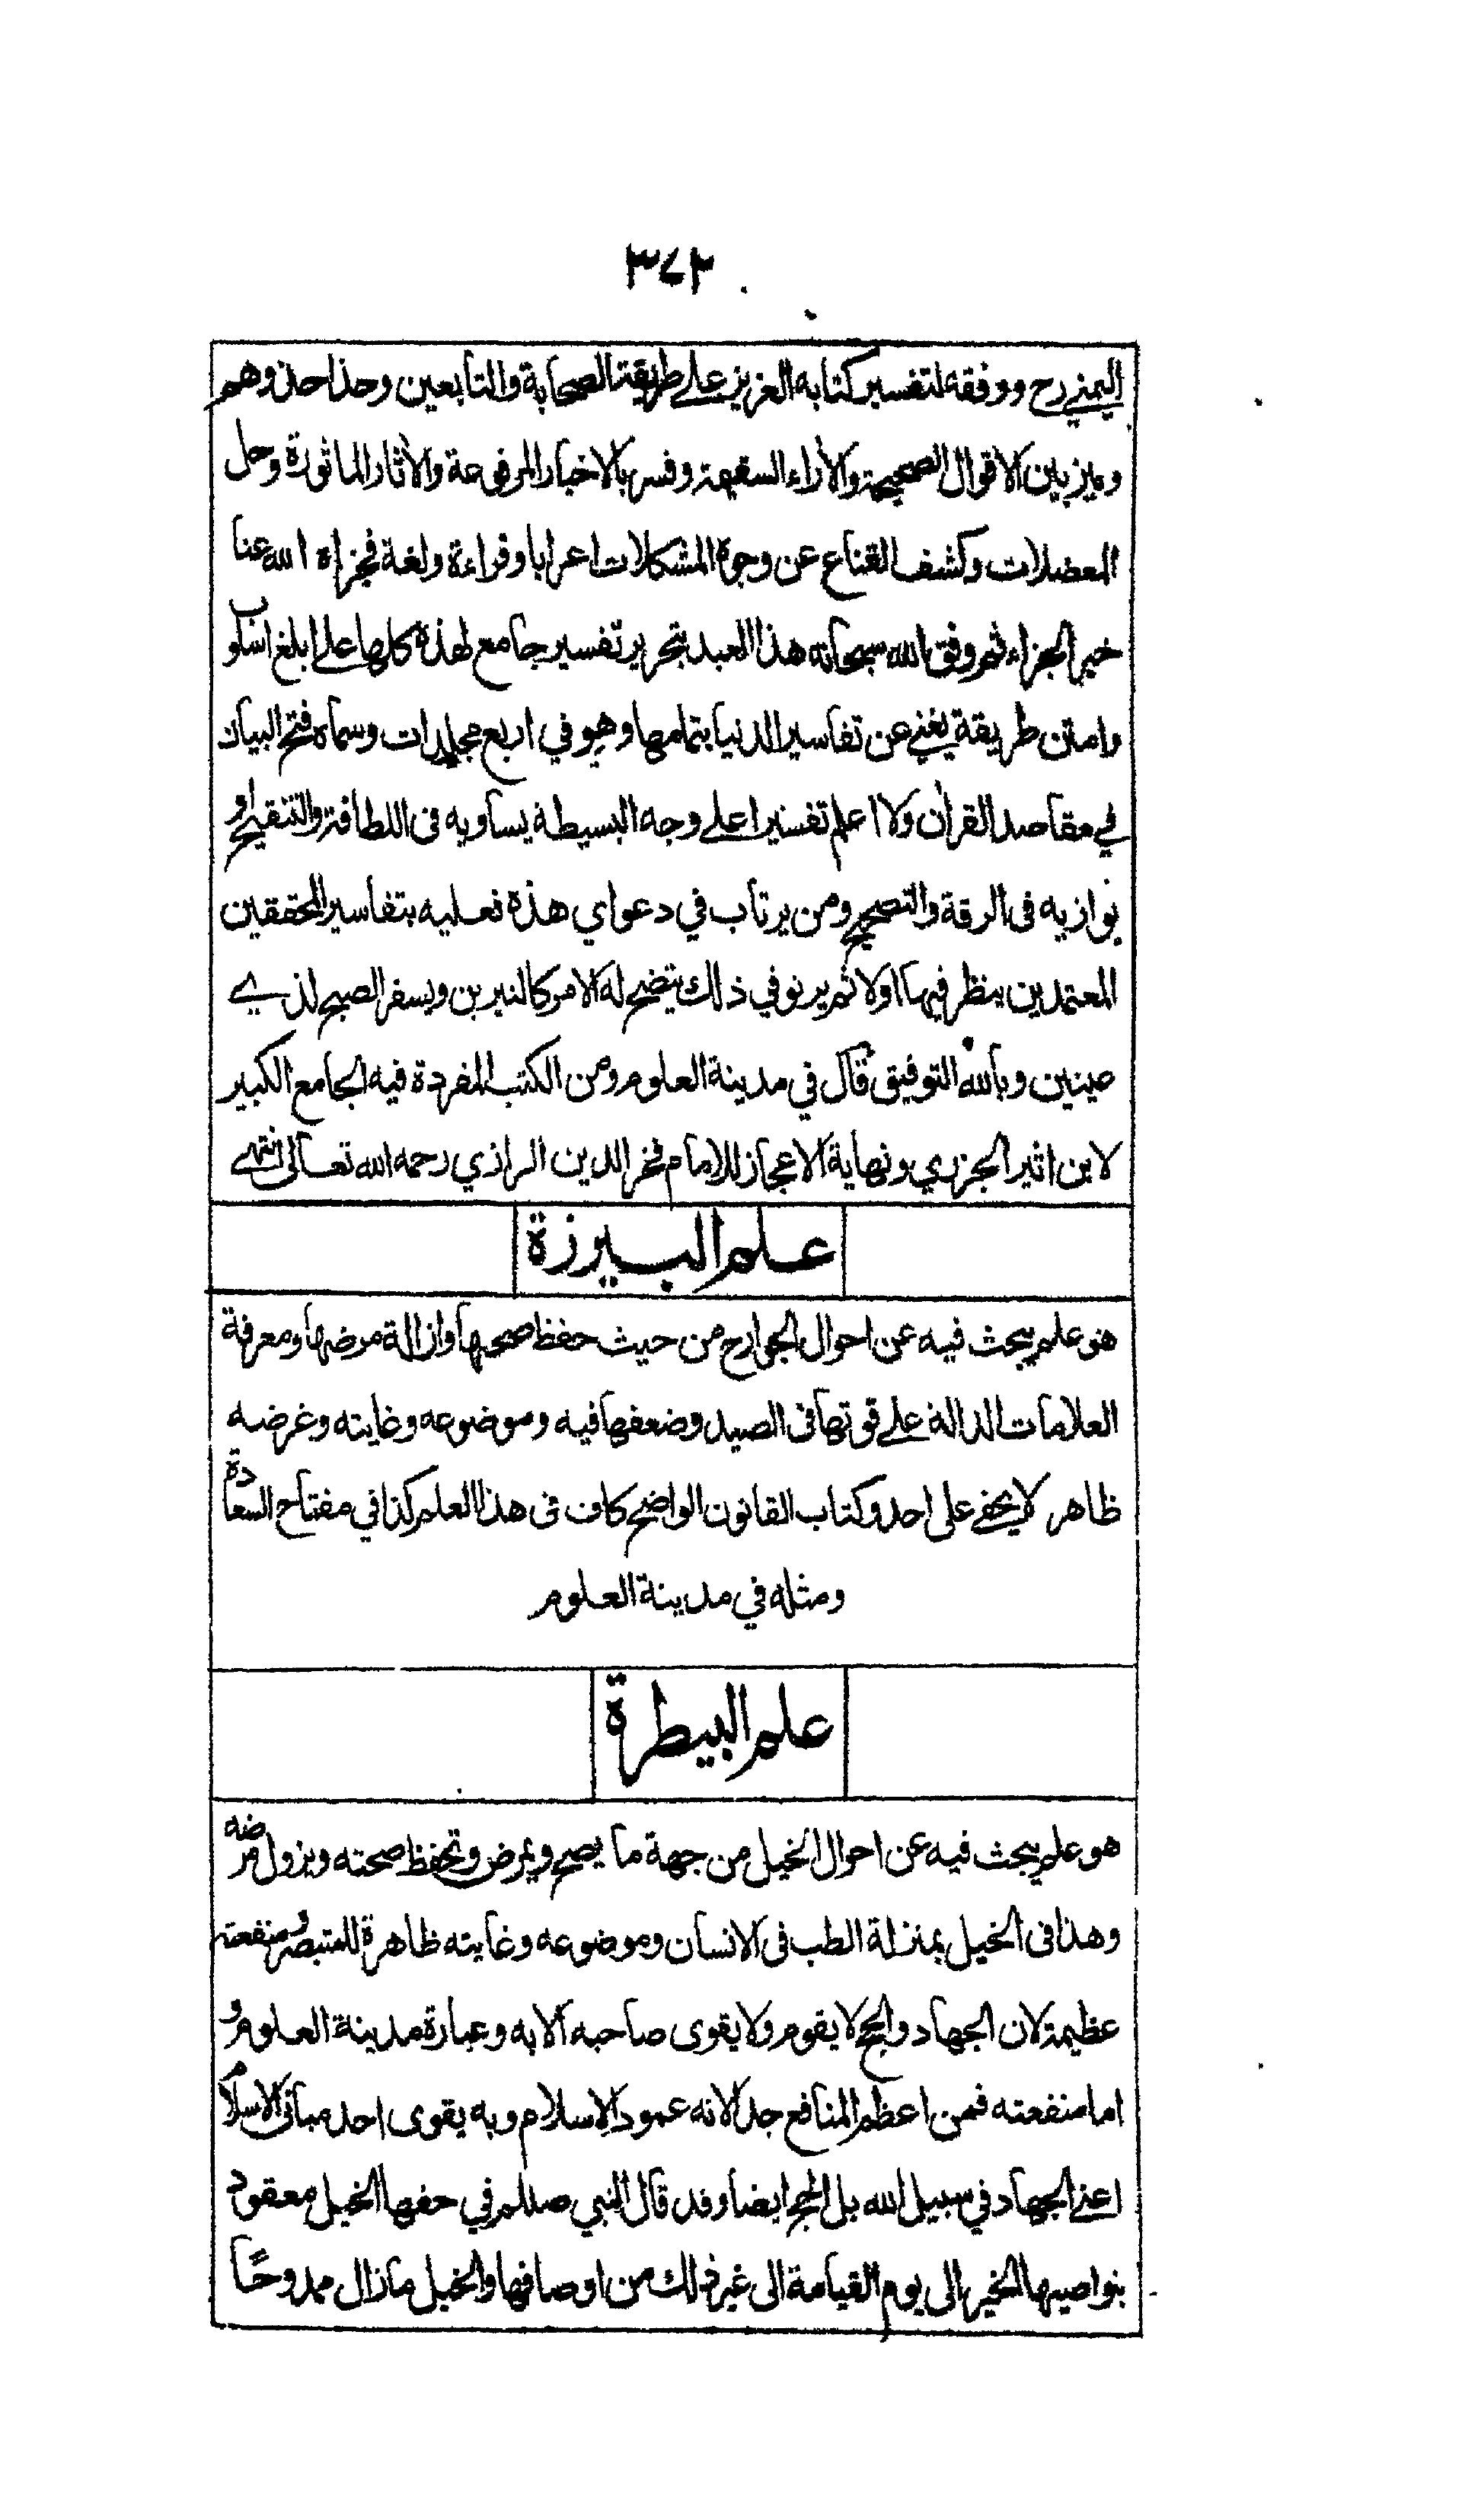 ٣٧٢
اليمني رح ووفقه لتفسير كتابه العزيز على طريقة الصحابة والتابعين وحذا حذوهم
وميز بين الاقوال الصحيحة والأراء السقيمة وفسر بالاخبار المرفوعة والأثار الماثورة وحل
المعضلات وكشف القناع عن وجوه المشكلات اعرابا وقراءة ولغة فجزاه الله عنا
خير الجزاء ثم وفق الله سبحانه هذا العبد بتحرير تفسير جامع لهذه كلها على ابلغ اسلوب
وامتن طريقة يغني عن تفاسير الدنيا بتمامها وهو في اربع مجلدات وسماه فتح البيان
في مقاصد القرأن ولا اعلم تفسيرا على وجه البسيطة يساويه فى اللطافة والتنقيح او
يوازيه فى الرقة والتصحيح ومن يرتاب في دعواي هذه فعليه بتفاسير المحققين
المعتمدين ينظر فيها اولا ثم يرنو في ذلك يتضح له الامر كالنيرين ويسفر الصبح لذي
عينين وبالله التوفيق قال في مدينة العلوم ومن الكتب المفردة فيه الجامع الكبير
لابن اثير الجزري ونهاية الاعجاز للامام فخر الدين الرازي رحمه الله تعالى انتهى
علم البيرزة
هو علم يبحث فيه عن احوال الجوارح من حيث حفظ صحتها وازالة مرضها ومعرفة
العلامات الدالة على قوتها فى الصيد وضعفها فيه وموضوعه وغايته وغرضه
ظاهر لا يخفى على احد وكتاب القانون الواضح كاف فى هذا العلم كذا في مفتاح السعادة
ومثله في مدينة العلوم
علم البيطرة
هو علم يبحث فيه عن احوال الخيل من جهة ما يصح ويمرض وتحفظ صحته ويزول مرضه
وهذا فى الخيل بمنزلة الطب فى الانسان وموضوعه وغايته ظاهرة للمتبصر ومنفعته
عظيمة لان الجهاد والحج لا يقوم ولا يقوى صاحبه الا به وعبارة مدينة العلوم و
اما منفعته فمن اعظم المنافع جدا لانه عمود الاسلام وبه يقوى احد مبانى الاسلام
اعني الجهاد في سبيل الله بل الحج ايضا وقد قال النبي صللم في حقها الخيل معقود
بنواصيها الخير الى يوم القيامة الى غير ذلك من اوصافها والخيل ما زال ممدوحًا